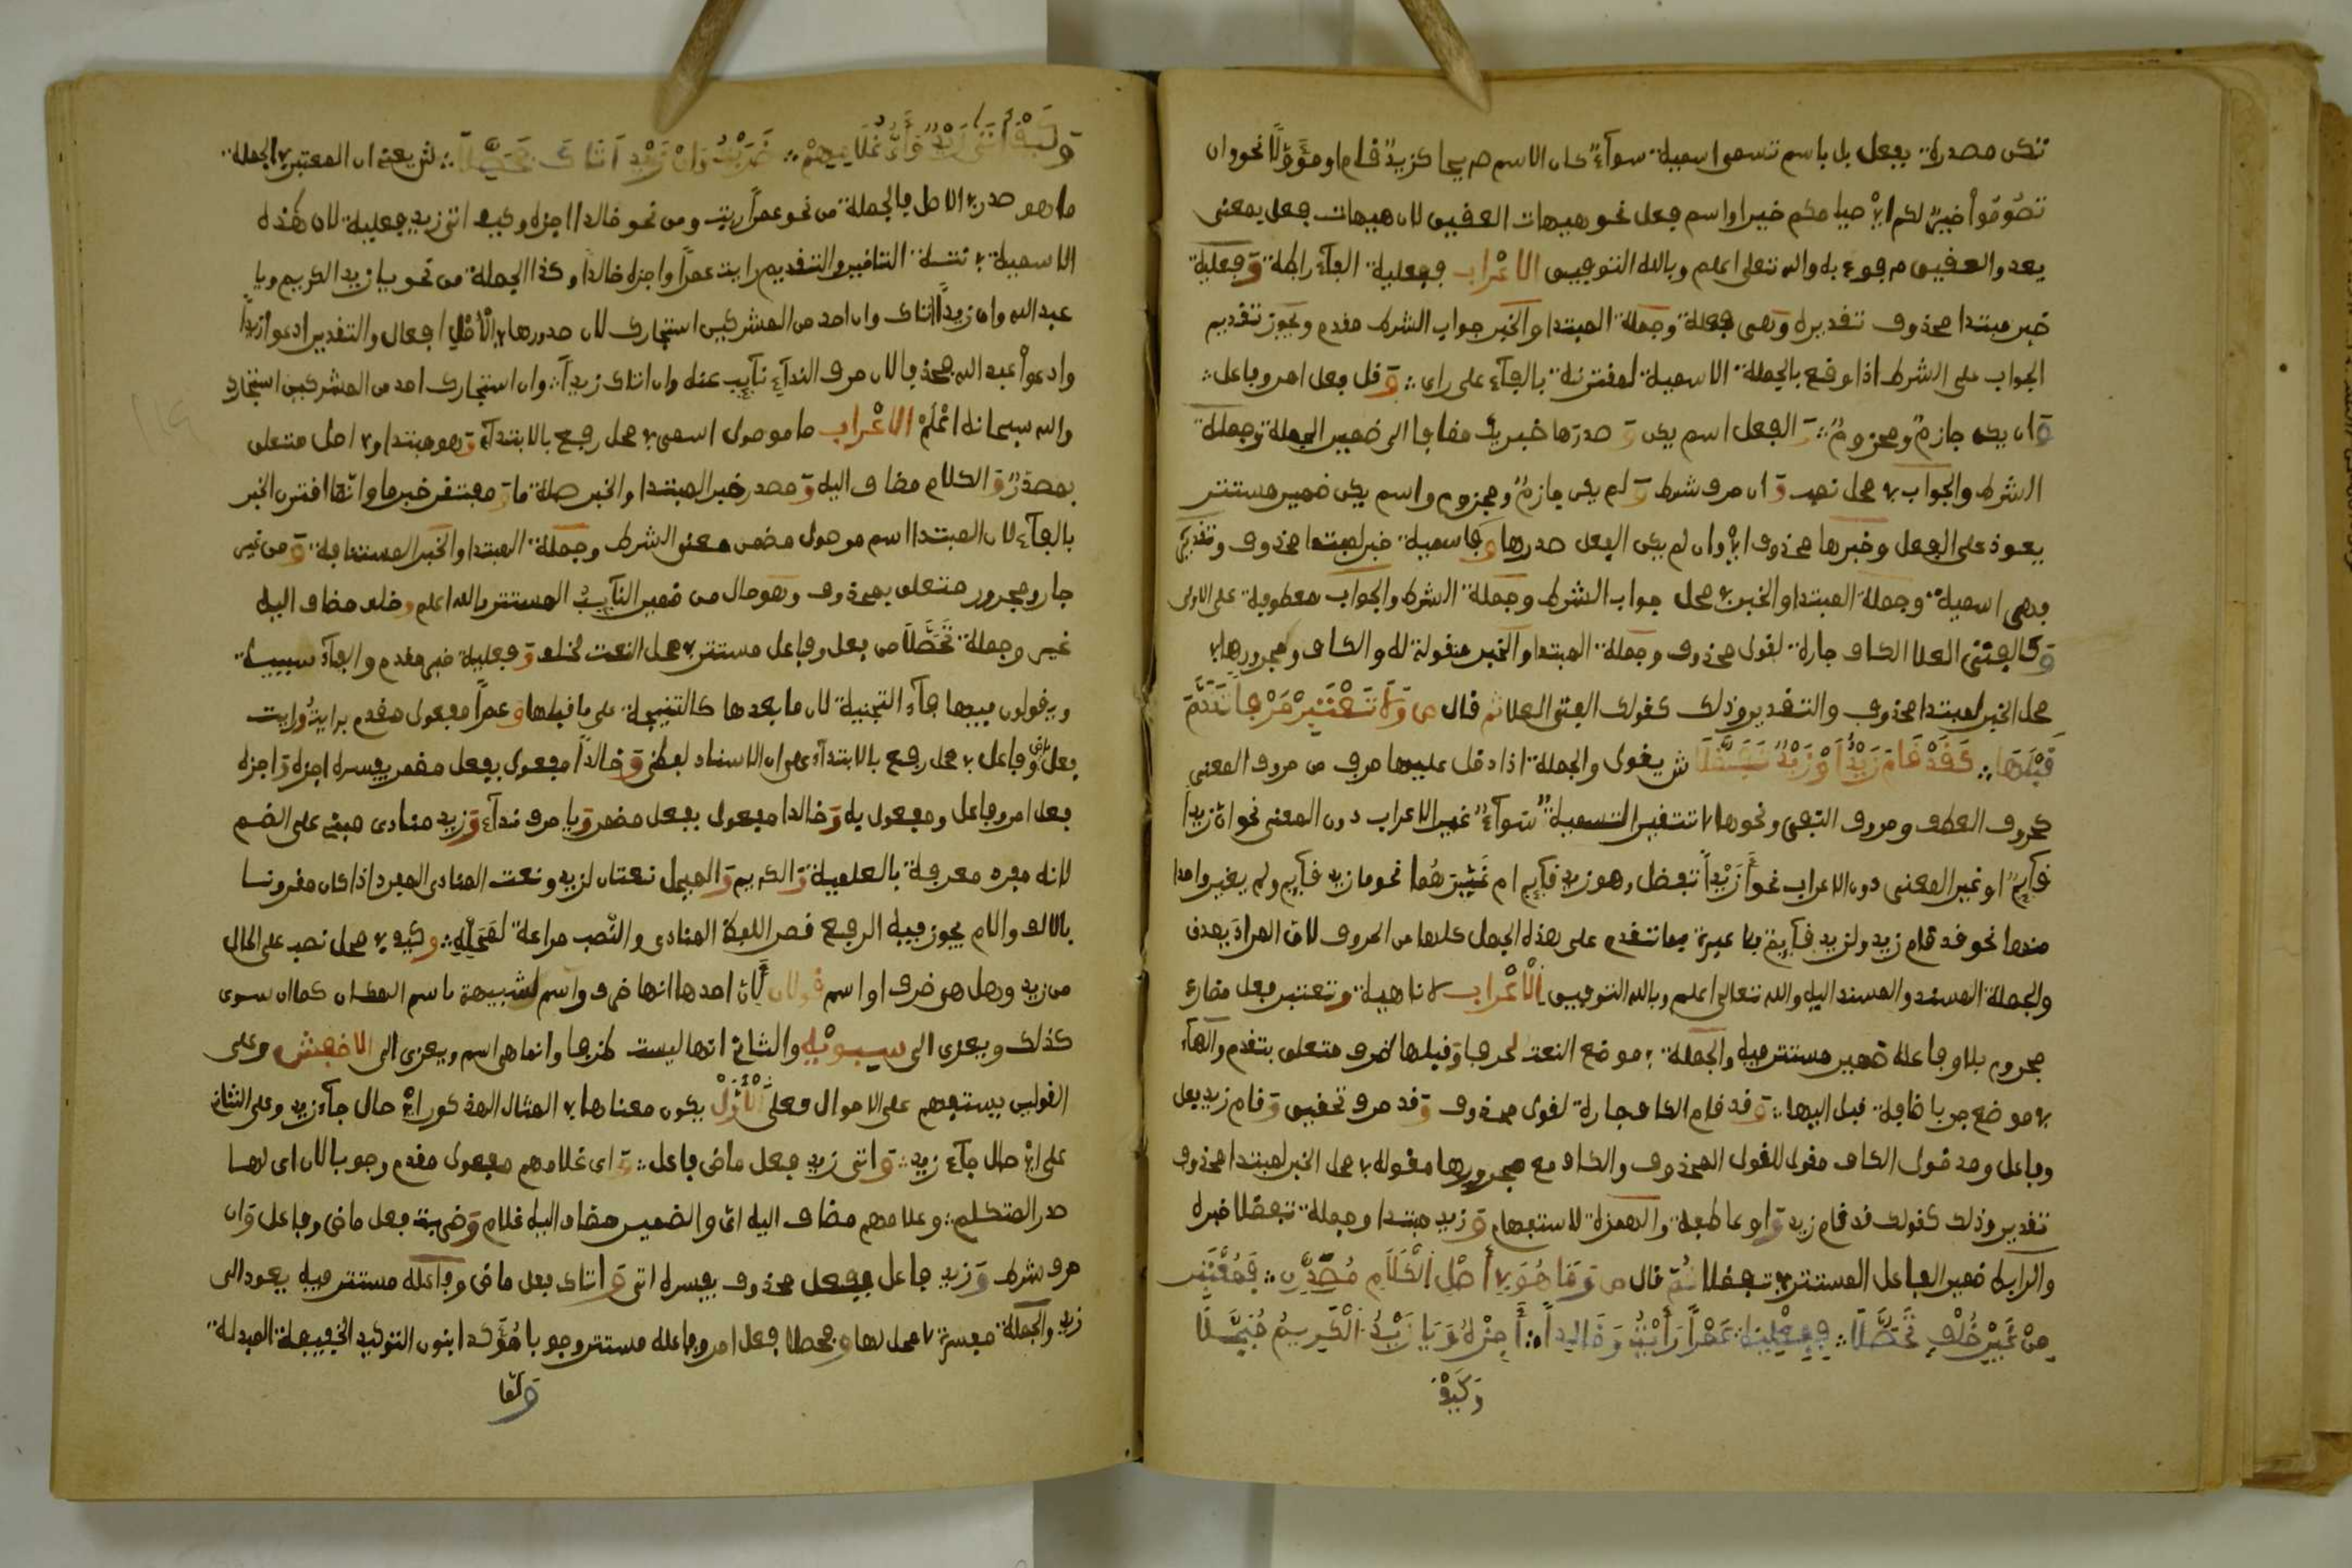 تكن مصدرة بفعل بل باسم تسمى اسمية سوآء كان الاسم صريحا كزيد قام او مؤولا نحو وان
تصوموا خير لكم اي صيامكم خير او اسم فعل نحو هيهات العقيق لان هيهات فعل بمعنى
بعد والعقيق مرفوع به والله تعلى اعلم وبالله التوفيق الاعراب ففعلية الفآء رابطة وفعلية
خبر مبتدا محذوف تقديره وهى فعلة وجملة المبتدا والخبر جواب الشرط مقدم ويجوز تقديم
الجواب على الشرط اذا وقع بالجملة الاسمية لمقترنة بالفآء على راى وقل فعل امر وفاعل
وان يكن جازم ومجزوم والفعل اسم يكن وصدرها خبر يك مضافا الى ضمير الجملة وجملة
الشرط والجواب في محل نصب وان حرف شرط ولم يكن جازم ومجزوم واسم يكن ضمير مستتر
يعود على الفعل وخبرها محذوف اي وان لم يكن الفعل صدرها وفاسمية خبر لمبتدا محذوف وتقديره
فهى اسمية وجملة المبتدا والخبر في محل جواب الشرط وجملة الشرط والجواب معطوفة على الاولى
وكالفتى العلا الكاف جارة لقول محذوف وجملة المبتدا والخبر مقولة له والكاف ومجرورها في
محل الخبر لمبتدا محذوف والتقدير وذلك كقولك الفتى العلا ثم قال ص ولا تعتبر حرفا تقدم
قبلها كقد قام زيد او زيد تفضلا ش يقول والجملة اذا دخل عليها حرف من حروف المعنى
كحروف العطف وحروف النفى ونحوها لا تتغير التسمية سوآء غير الاعراب دون المعنى نحو ان زيدا
قآيم او غير المعنى دون الاعراب نحو أزيد تفضل وهو زيد قآيم ام غيرهما نحو ما زيد قآيم ولم يغير واحدا
منهما نحو قد قام زيد ولزيد قآيم فلا عبرة بما تقدم على هذه الجمل كلها من الحروف لان المراد بصدر
والجملة المسند والمسند اليه والله تعالى اعلم وبالله التوفيق الاعراب لا ناهية وتعتبر فعل مضارع
مجروم بلا وفاعله ضمير مستتر فيه والجملة في موضع النعت لحرفا وقبلها ظرف متعلق بتقدم والهآء
في موضع جر باضافة قبل اليها وقد قام الكاف جارة لقول محذوف وقد حرف تحقيق وقام زيد فعل
وفاعل ومدخول الكاف مقول للقول المحذوف والكاف مع مجرورها مقولة في محل الخبر لمبتدا محذوف
تقديره وذلك كقولك قد قام زيد واو عاطفة والهمزة للاستفهام وزيد مبتدا وجملة تفضلا خبره
والرابط ضمير الفاعل المستتر في تفضلا ثم قال ص وما هو في أصل الكلام مصدر فمعتبر
من غير خلف تحصلا ففعلية عمرا رأيت وخالدا أجزه ويا زيد الكريم مبجلا
وكيف
وكيف أتى زيد وأي غلامهم ضربت وان زيد اتاك تحصلا ش يعنى ان المعتبر في الجملة
ما هو صدر في الاصل فالجملة من نحو عمرا رايت ومن نحو خالدا اجزه وكيف اتى زيد فعلية لان هذه
الاسمية في نية التاخير والتقديم رايت عمرا واجزه خالدا وكذا الجملة من نحو يا زيد الكريم ويا
عبد الله وان زيدا اتاك وان احد من المشركين استجارك لان صدورها في الاصل افعال والتقدير ادعو ازيدا
وادعوا عبد الله محذف لان حرف الندآء نآيب عنه وان اتاك زيد وان استجارك احد من المشركين استجارك
والله سبحانه اعلم الاعراب ما موصول اسمى في محل رفع بالابتدآء وهو مبتدا وفي اصل متعلق
بمصدر والكلام مضاف اليه ومصدر خبر المبتدا والخبر صلة ما ومعتبر خبر ما وانما اقترن الخبر
بالفآء لان المبتدا اسم موصول مضمن معنى الشرط وجملة المبتدا والخبر المستنافة ومن غير
جار ومجرور متعلق بمحذوف وهو حال من ضمير النآيب المستتر والله اعلم وخلف مضاف اليه
غير وجملة تحصلا من فعل وفاعل مستتر في محل النعت لخلف وفعلية خبر مقدم والفآء سببية
ويقولون فيها فآء النتيجة لان ما بعدها كالنتيجة على ما قبلها وعمرا مفعول مقدم برايت ورايت
فعل ماض وفاعل في محل رفع بالابتدآء على ان الاسناد لفظى وخالدا مفعول بفعل مضمر يفسره اجزه واجزه
فعل امر وفاعل ومفعول به وخالدا مفعول بفعل مضمر ويا حرف ندآء وزيد منادى مبنى على الضم
لانه مفرد معرفة بالعلمية والكريم والمبجل نعتان لزيد ونعت المنادى المفرد اذا كان مقرونا
بالالف والام يجوز فيه الرفع المنادى والنصب مراعة لمحله وكيف في محل نصب على الحال
من زيد وهل هى ظرف او اسم قولان احدها انها ظرف واسم لشبيهة باسم المكان كما ان سوى
كذلك ويعزى الى سيبويه والثانى انها ليست ظرفا وانما هى اسم ويعزى الى الاخفش وعلى
القولين يستفهم على الاحوال فعلى الأول يكون معناها في المثال المذكور اى حال جآء زيد وعلى الثانى
على اى حال جآء زيد واتى زيد فعل ماض فاعل واى غلامهم مفعول مقدم وجوبا لان اى لها
صدر المتكلم وغلامهم مضاف اليه اى والضمير مضاف اليه غلام وضربت فعل ماض وفاعل وان
حرف شرط وزيد فاعل بفعل محذوف يفسره اتى واتاك فعل ماض وفاعله مستتر فيه يعود الى
زيد والجملة مفسرة لا محل لها وتحصلا فعل امر وفاعله مستتر وجوبا مؤكد ابنون التوكيد الخفيفة المبدلة
ولما